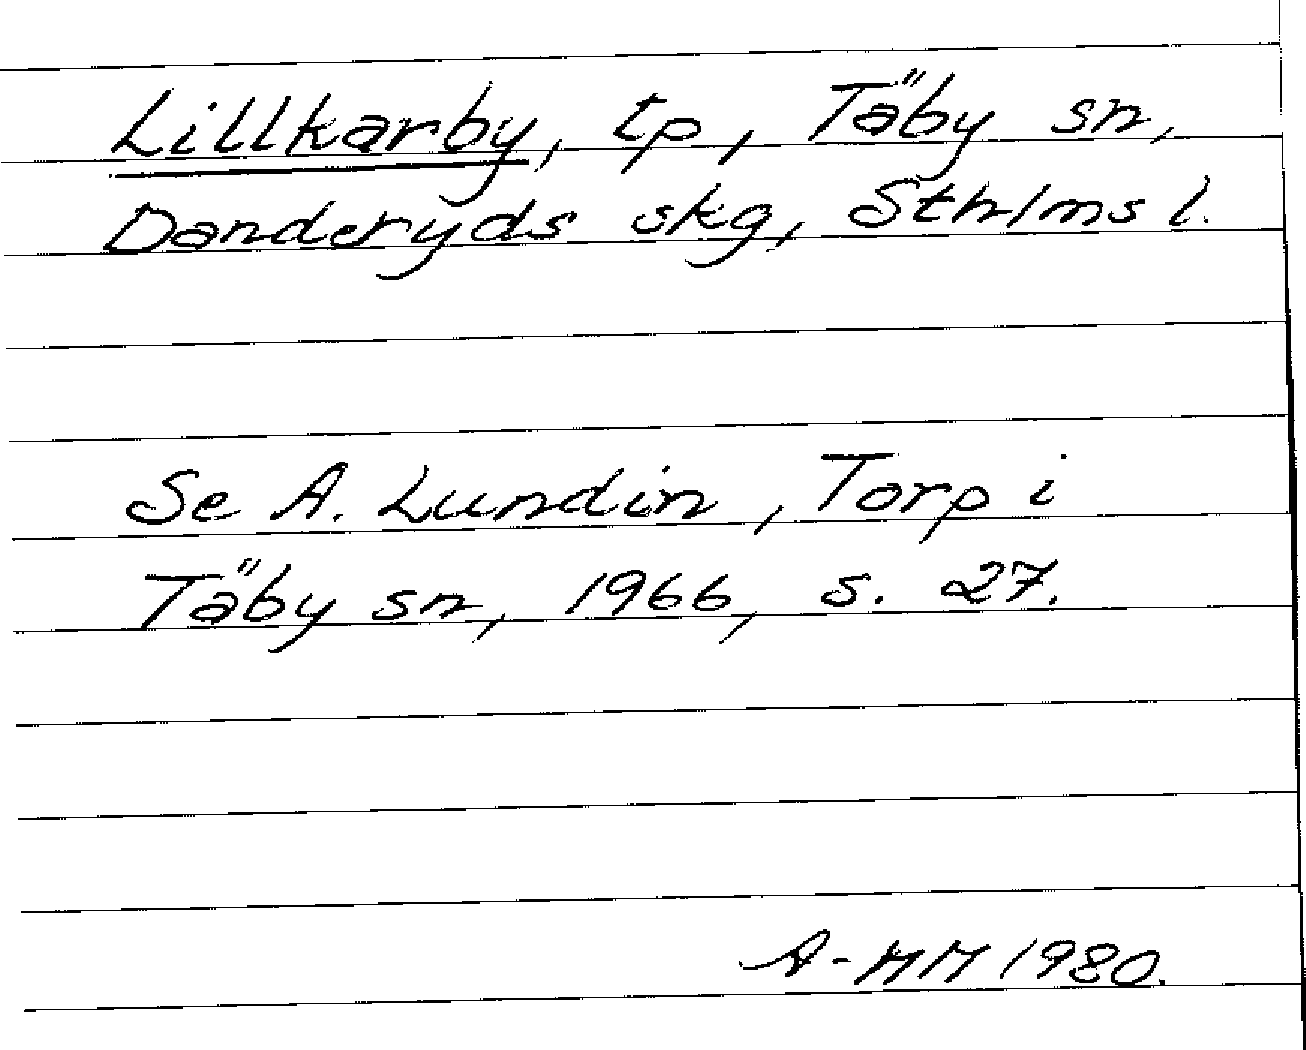 Lillkarby, tp, Täby sn,
Danderyds skg, Sthlms l.
Se A. Lundin, Torp i
Täby sn, 1966, s. 27.
A-MM 1980.